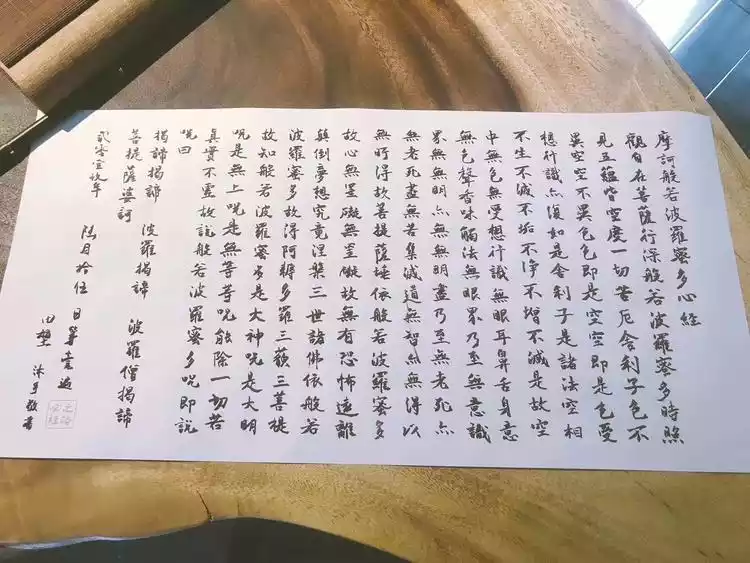 摩訶般若波羅蜜多心經
觀自在菩薩行深般若波羅蜜多時照
見五蘊皆空度一切苦厄舍利子色不
異空空不異色色即是空空即是色受
想行識亦復如是舍利子是諸法空相
不生不滅不垢不淨不增不減是故空
中無色無受想行識無眼耳鼻舌身意
無色聲香味觸法無眼界乃至無意識
界無無明亦無無明盡乃至無老死亦
無老死盡無苦集滅道無智亦無得以
無所得故菩提薩埵依般若波羅蜜多
故心無罣礙無罣礙故無有恐怖遠離
顛倒夢想究竟涅槃三世諸佛依般若
波羅蜜多故得阿耨多羅三藐三菩提
故知般若波羅蜜多是大神咒是大明
咒是無上咒是無等等咒能除一切苦
真實不虛故說般若波羅蜜多咒即說
咒曰
揭諦揭諦 波羅揭諦 波羅僧揭諦
菩提薩婆訶
貳零壹玖年 陸月拾伍日第壹遍
田 沐手敬書